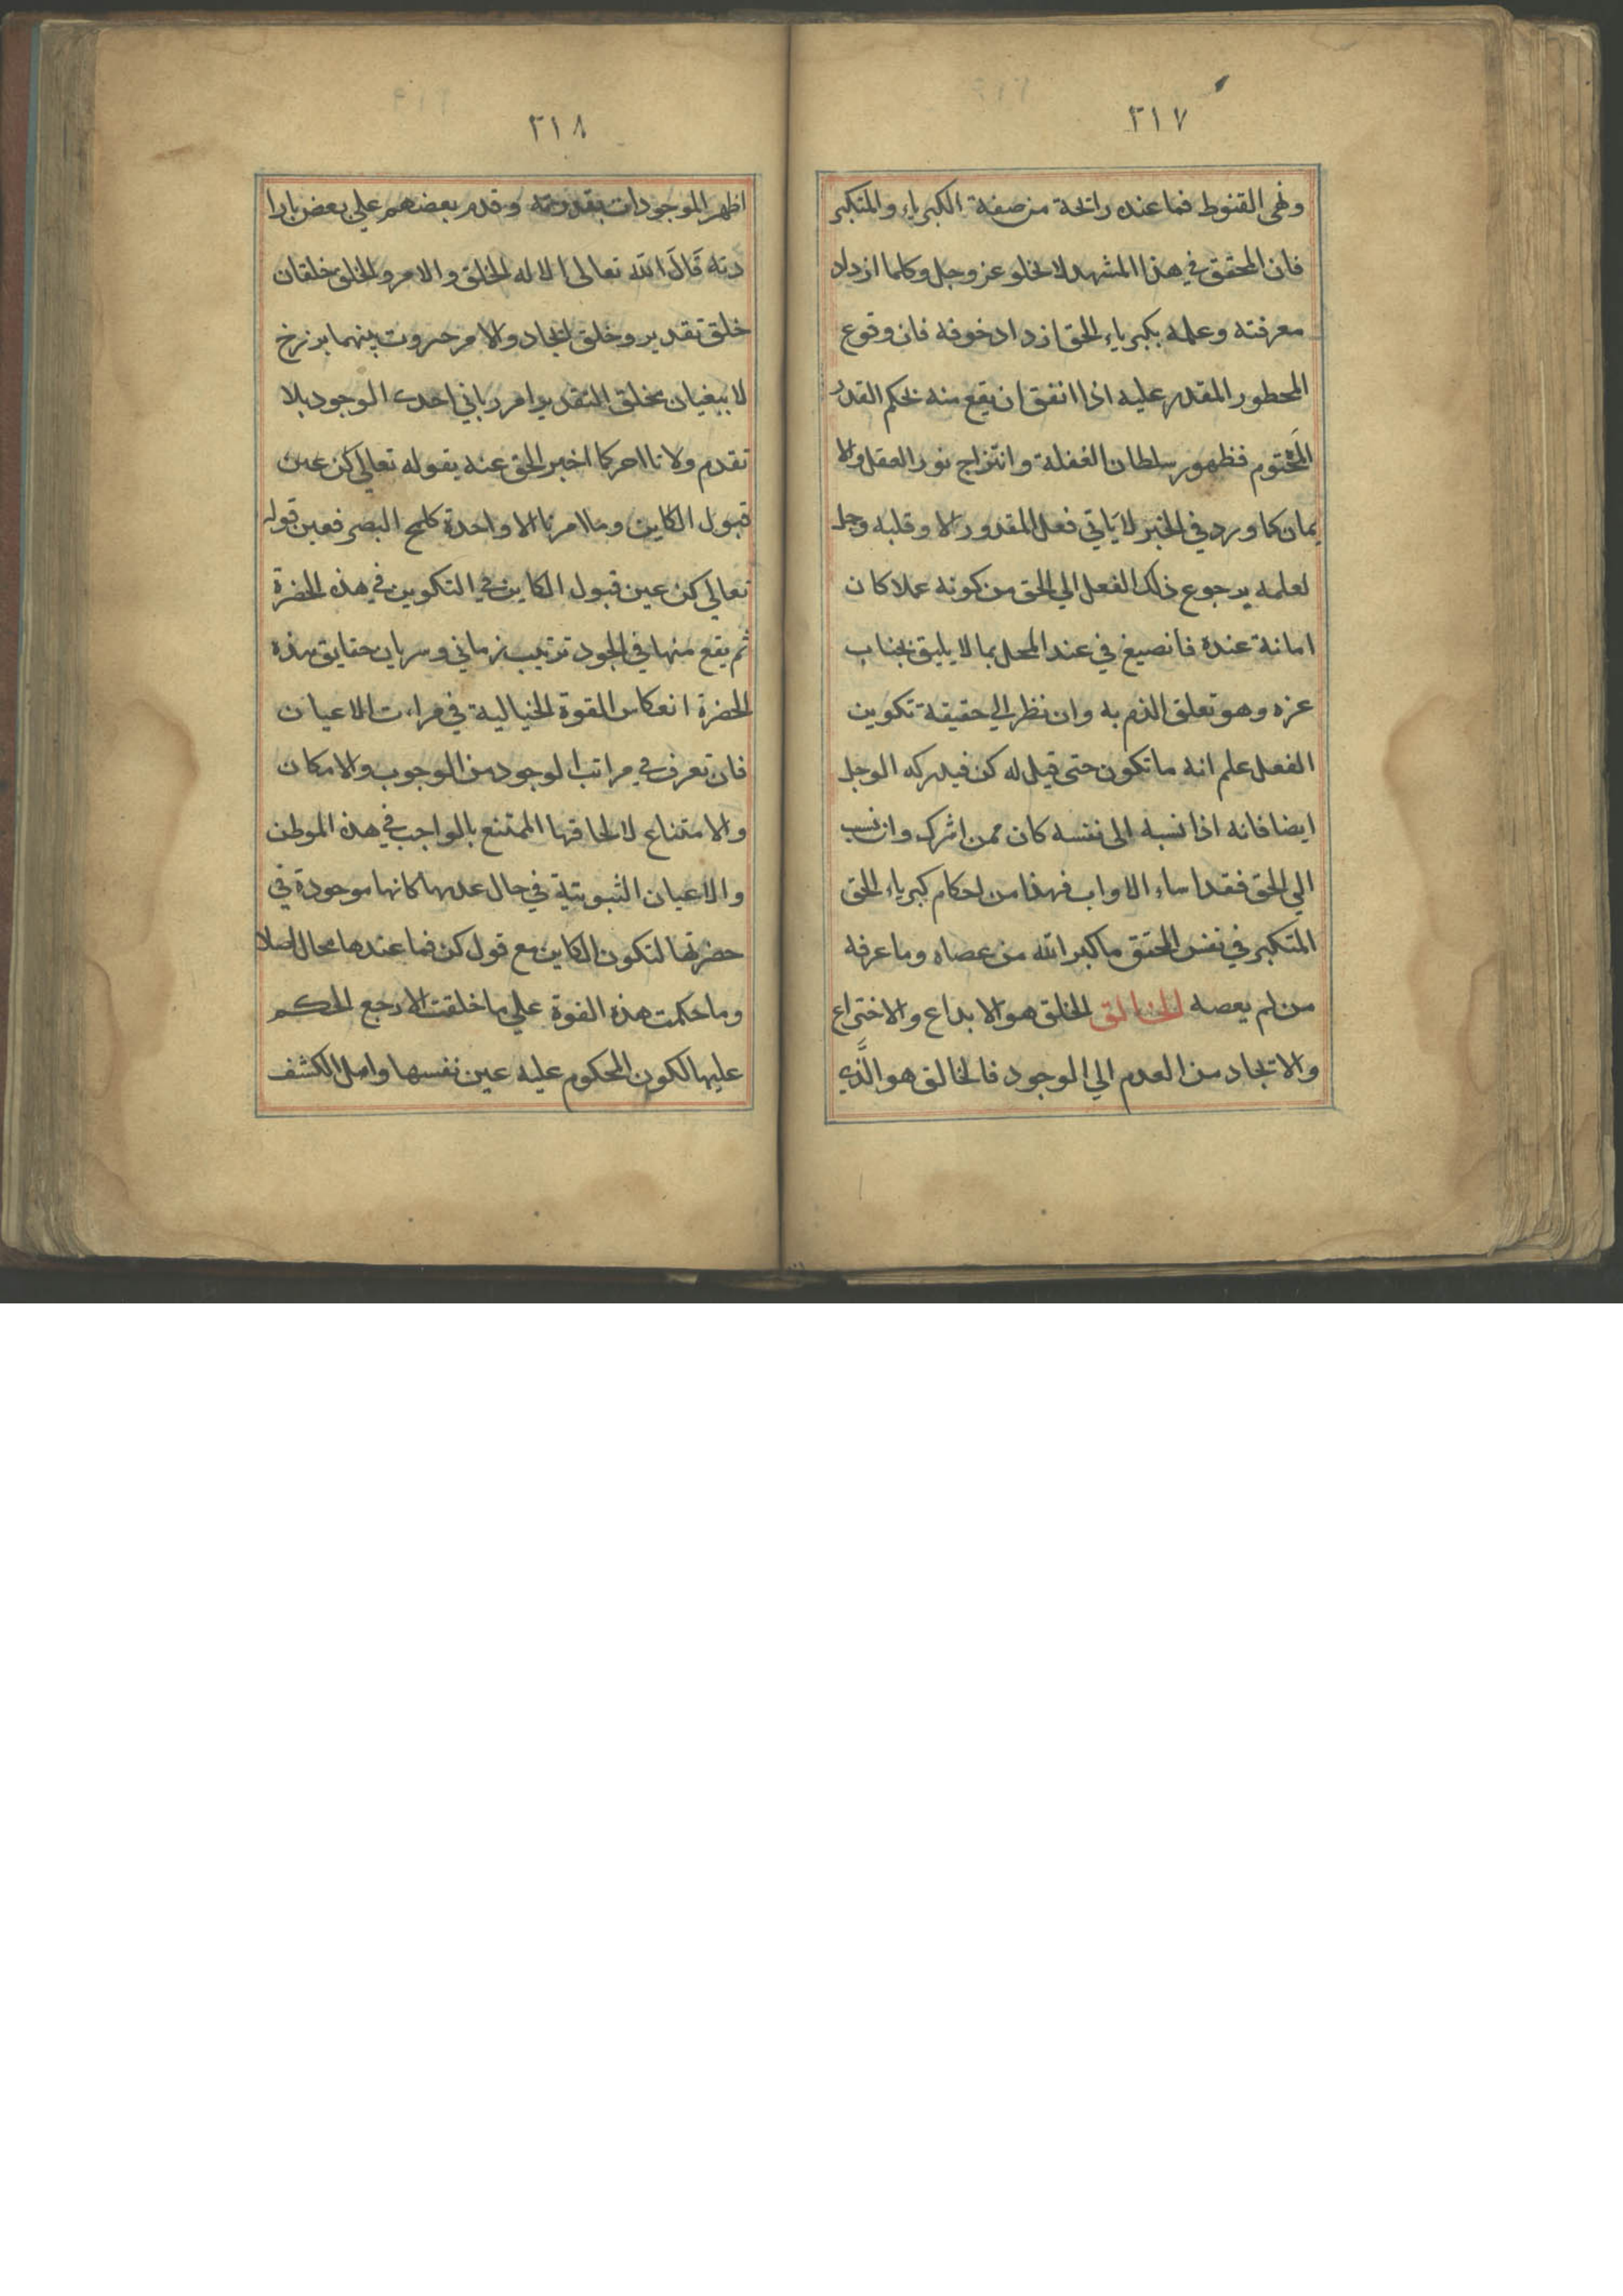 ٢١٧
ونهى القنوط فما عنده رائحة من صفة الكبرياء والمتكبر
فان المحقق في هذا المشهد لا يخلو عز وجل وكلما ازداد
معرفته وعلمه بكبرياء الحق ازداد خوفه فان وقوع
المحطور المقدر عليه اذا اتفق ان يقع منه بحكم القدر
المحتوم فظهور سلطان الغفلة وانتزاج نور العقل والا
يمان كما ورد في الخبر لا ياتي فعل المقدور الا وقلبه وجل
لعلمه يرجوع ذلك الفعل الي الحق من كونه عملا كان
امانة عنده فانصيغ في عند المحل بما لا يليق بجناب
عزه وهو تعلق الذم به وان نظر الي حقيقة تكوين
الفعل علم انه ما تكون حتى قيل له كن فيدركه الوجل
ايضا فانه اذا نسبه الى نفسه كان ممن اشرك وان نسب
الي الحق فقد اساء الاواب فهذا من احكام كبرياء الحق
المتكبر في نفس المحقق ما كبر الله من عصاه وما عرفه
من لم يعصه الخالق الخلق هو الابداع والاختراع
والاتجاد من العدم الي الوجود فالخالق هو الَّذي
٢١٨
اظهر الموجودات بقدرته وقدم بعضهم علي بعض بارا
دته قَالَ الله تعالى الا له الخلق والامر والخلق خلقان
خلق تقدير وخلق ايجاد والامر بينهما برزخ
لا يبغيان فخلق التقدير امر رباني احدى الوجود بلا
تقدم ولا تااحر كما اخبر الحق عنه بقوله تعالي كن عين
قبول الكاين وما امرنا الا واحدة كلمح البصر فعين قوله
تعالي كن عين قبول الكاين في التكوين في هذه الحضرة
ثم يقع منها في الجود ترتيب زماني وسريان حقايق هذه
الحضرة انعكاس القوة الخيالية في مراءت الاعيان
فان تعرف في مراتب الوجود من الوجوب والامكان
والامتناع لالحاقها الممتنع بالواجب في هذه الموطن
والاعيان الثبوتية في حال عدمها كانها موجودة في
حضرتها لتكون الكاين مع قول كن فما عندها محال اصلا
وما حكمت هذه القوة علي ما خلقت الا رجع الحكم
عليها لكون المحكوم عليه عين نفسها واصل الكشف